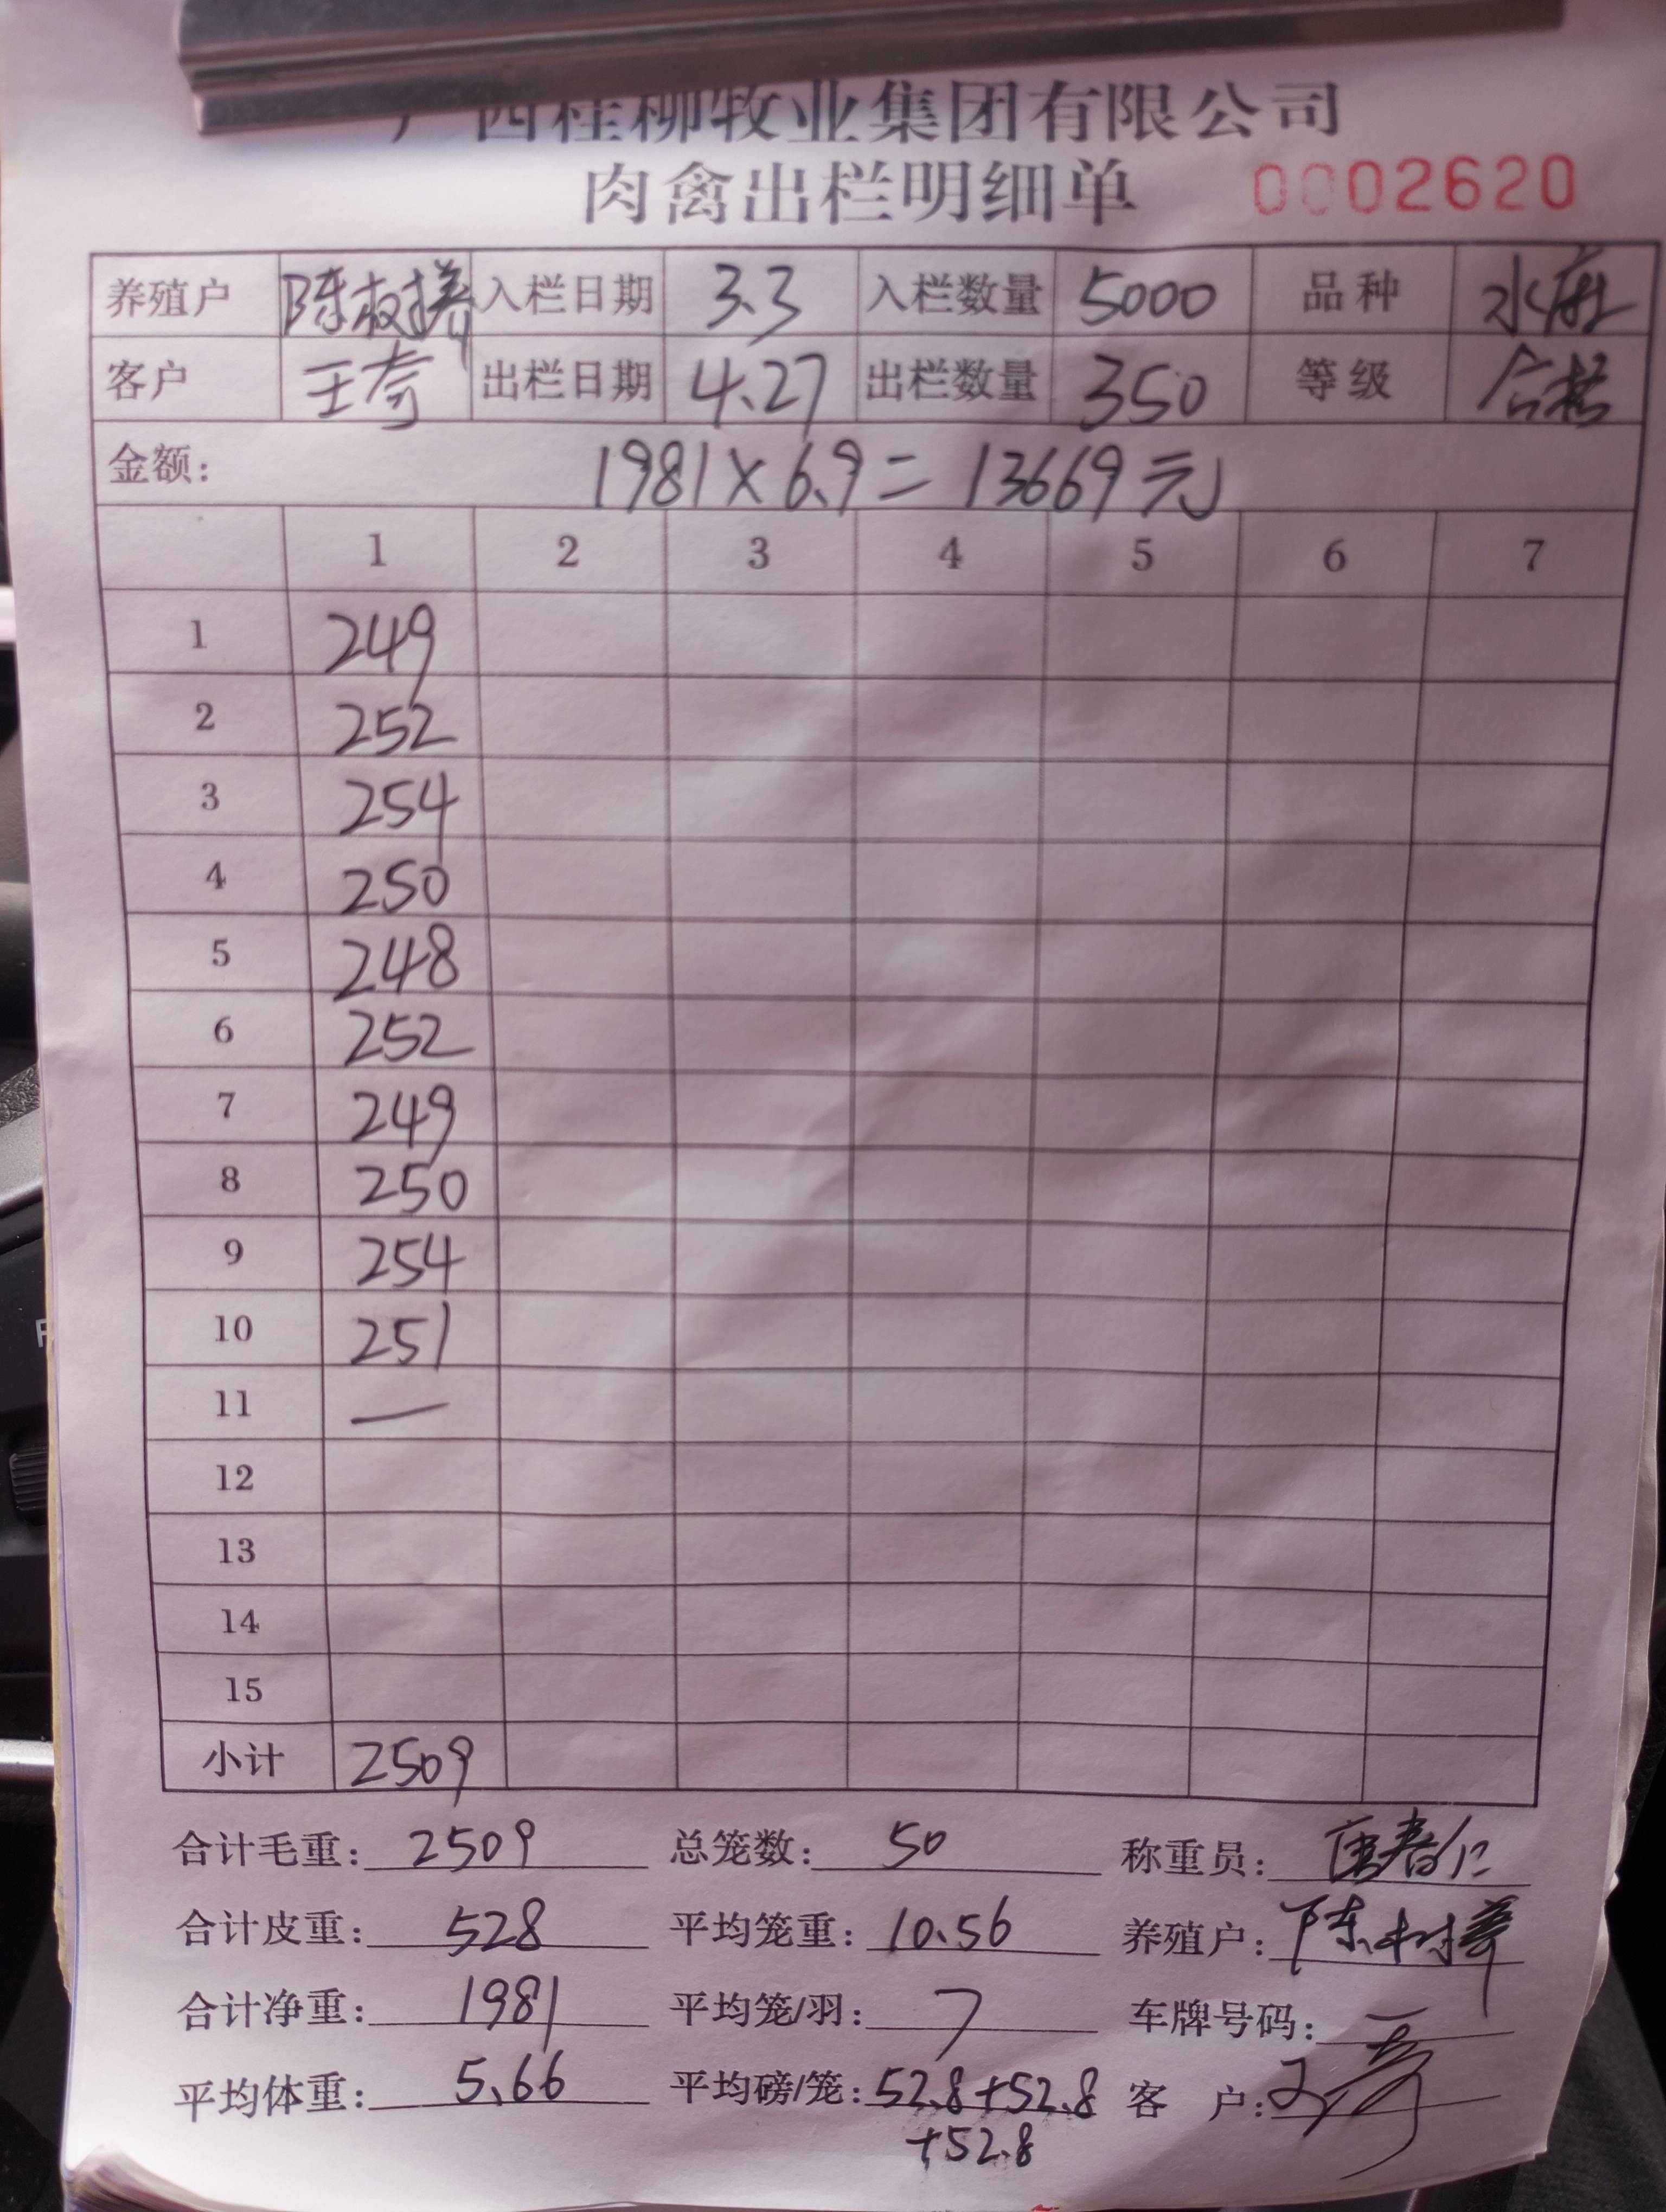 广西桂柳牧业集团有限公司
肉禽出栏明细单 0002620
养殖户 陈树养 入栏日期 3.3 入栏数量 5000 品种 水麻
客户 王奇 出栏日期 4.27 出栏数量 350 等级 合格
金额: 1981×6.9=13669元
1 2 3 4 5 6 7
1 249
2 252
3 254
4 250
5 248
6 252
7 249
8 250
9 254
10 251
11 —
12
13
14
15
小计 2509
合计毛重: 2509 总笼数: 50 称重员:
合计皮重: 528 平均笼重: 10.56 养殖户:
合计净重: 1981 平均笼/羽: 7 车牌号码:
平均体重: 5.66 平均磅/笼: 52.8+52.8 客 户: 王奇
+52.8